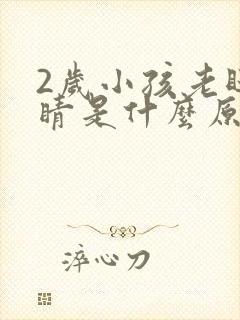 2歲小孩老
睛是什麼原
淬心刀